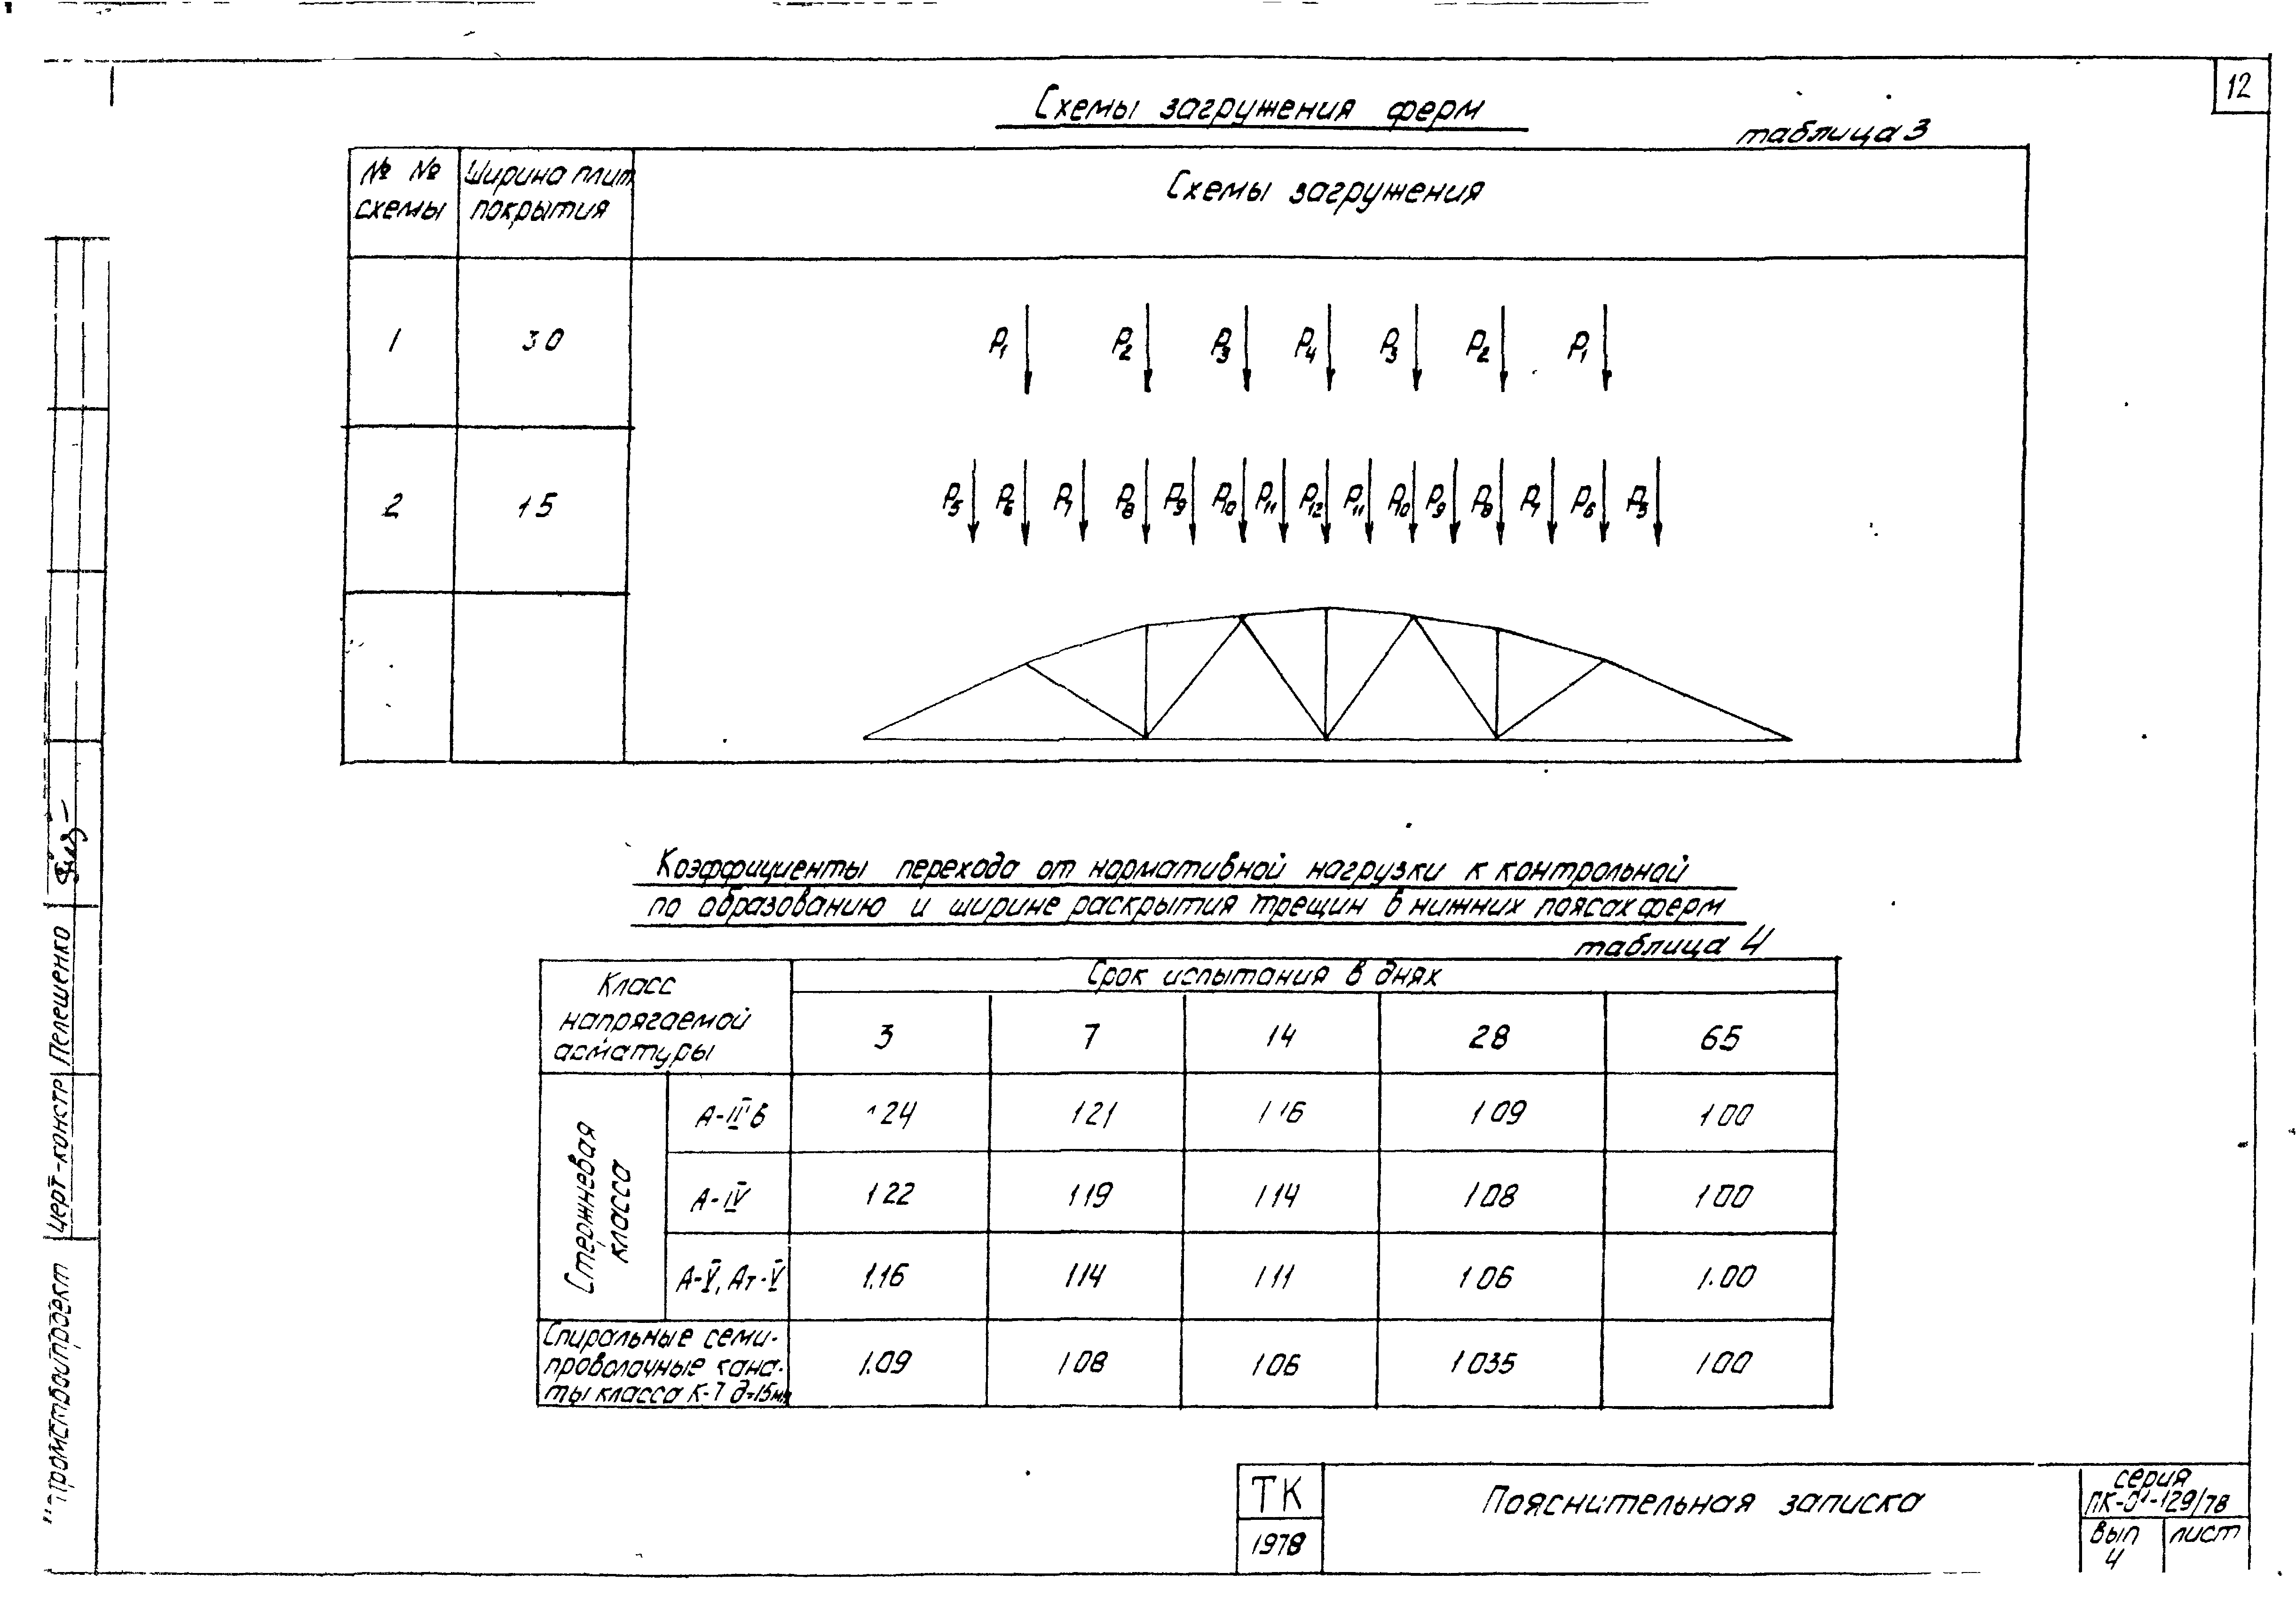 12
Схемы загружения ферм
таблица 3
№ №
схемы
Ширина плит
покрытия
Схемы загружения
1
3 0
P1 P2 P3 P4 P3 P2 P1
2
1 5
P5 P6 P7 P8 P9 P10 P11 P12 P11 P10 P9 P8 P7 P6 P5
Коэффициенты перехода от нормативной нагрузки к контрольной
по образованию и ширине раскрытия трещин в нижних поясах ферм
таблица 4
Класс
напрягаемой
арматуры
Срок испытания в днях
3 7 14 28 65
Стержневая
класса
А-IIIв 1 24 1 21 1 16 1 09 1 00
А-IV 1 22 1 19 1 14 1 08 1 00
А-V, Ат-V 1.16 1 14 1 11 1 06 1.00
Спиральные семи-
проволочные кана-
ты класса К-7 d=15мм
1.09 1 08 1 06 1 035 1 00
ТК
1978
Пояснительная записка
серия
ПК-01-129/78
вып
4
лист
Пелешенко